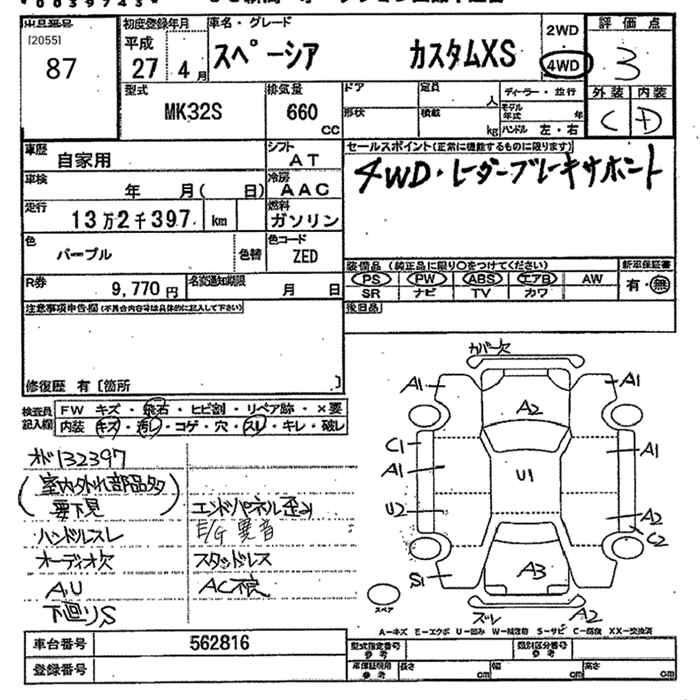 *0039743*
出品番号 [2055] 87
初度登録年月 平成 27年 4月
車名・グレード スペーシア カスタムXS
2WD 4WD
評価点 3
外装 C 内装 D
型式 MK32S
排気量 660 cc
ドア 形状
定員 人 積載 kg
ディーラー・並行
モデル年式 年
ハンドル 左・右
車歴 自家用
シフト AT
車検 年 月( 日)
冷房 AAC
走行 13万2千397 km
燃料 ガソリン
色 パープル 色替
色コード ZED
R券 9,770 円
名変通知期限 月 日
セールスポイント(正常に機能するものに限ります)
4WD・レーダーブレーキサポート
装備品(純正品に限り○をつけてください) 新車保証書
PS PW ABS エアB AW 有・無
SR ナビ TV カワ
後日品
注意事項申告欄(不具合内容は具体的に記入して下さい)
修復歴 有[箇所 ]
検査員記入欄
FW キズ・飛石・ヒビ割・リペア跡・×要
内装 キズ・汚レ・コゲ・穴・スレ・キレ・破レ
オド132397
(室内外れ部品多
要下見)
ハンドルスレ
オーディオ欠
A,U
下廻りS
エンドパネル歪み
E/G異音
スタッドレス
AC不良
カバー欠
A1 A1
A2
C1 A1
A1 U1
U2 A2
C2
S1 A3
スペア ズレ A2
A−キズ E−エクボ U−凹み W−補修跡 S−サビ C−腐食 XX−交換済
車台番号 562816
登録番号
型式指定番号 参考
類別区分番号 参考
車庫証明用 参考 長さ cm 幅 cm 高さ cm